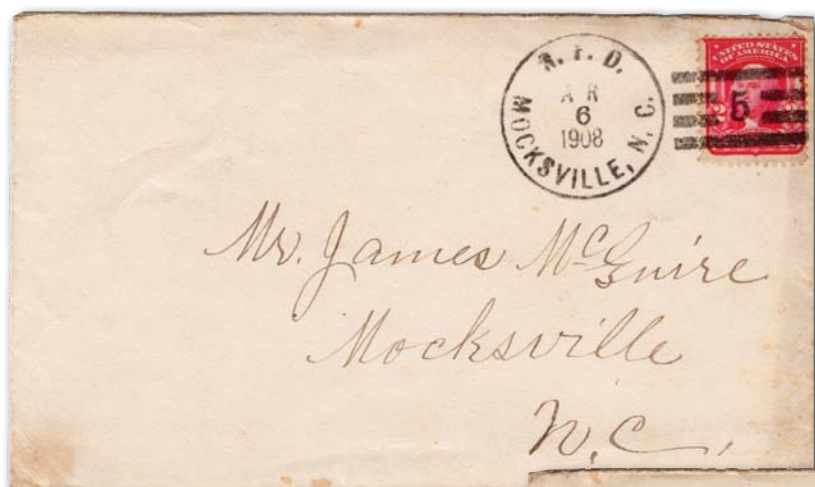 R. F. D.
AR
6
1908
MOCKSVILLE, N. C.
UNITED STATES
OF AMERICA
2
5
Mr. James McGuire
Mocksville
N.C.